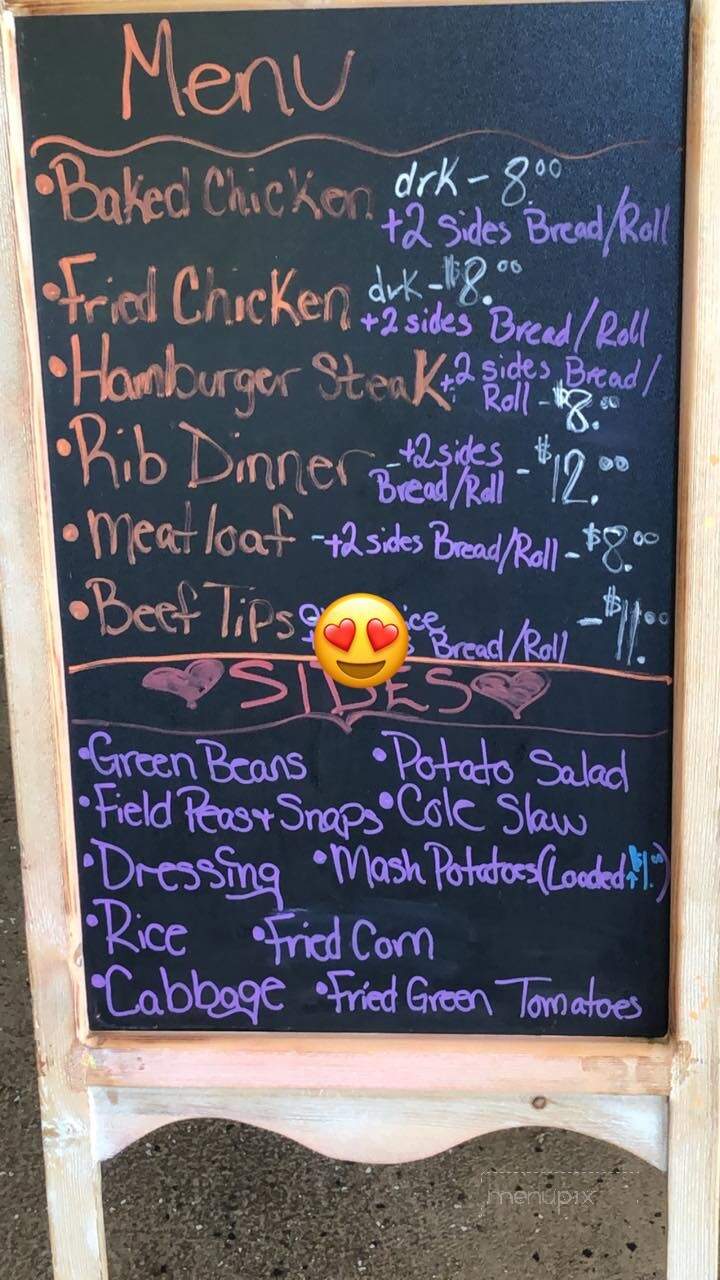 Menu
• Baked Chicken drk - 8.00
+2 sides Bread/Roll
• Fried Chicken drk - $8.00
+2 sides Bread/Roll
• Hamburger Steak +2 sides Bread/
Roll - $8.00
• Rib Dinner - +2 sides
Bread/Roll - $12.00
• meatloaf - +2 sides Bread/Roll - $8.00
• Beef Tips - $11.00
Bread/Roll
SIDES
• Green Beans • Potato Salad
• Field Peas + Snaps • Cole Slaw
• Dressing • Mash Potatoes (Loaded ↑$1.00)
• Rice • Fried Corn
• Cabbage • Fried Green Tomatoes
menupix